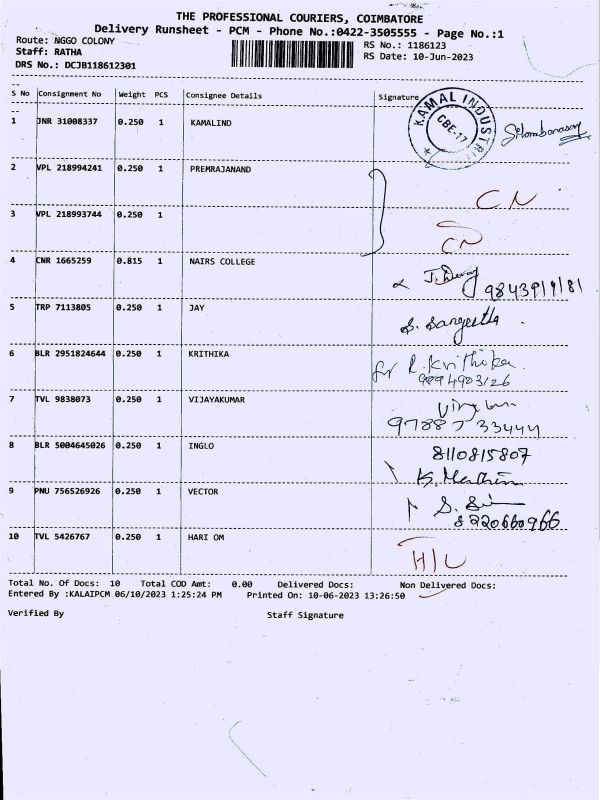 THE PROFESSIONAL COURIERS, COIMBATORE
Delivery Runsheet - PCM - Phone No.:0422-3505555 - Page No.:1
Route: NGGO COLONY
RS No.: 1186123
Staff: RATHA
RS Date: 10-Jun-2023
DRS No.: DCJB118612301
S No Consignment No Weight PCS Consignee Details Signature
KAMAL INDUSTRI
CBE-17
1 JNR 31008337 0.250 1 KAMALIND
2 VPL 218994241 0.250 1 PREMRAJANAND
CN
3 VPL 218993744 0.250 1
CN
4 CNR 1665259 0.815 1 NAIRS COLLEGE
5 TRP 7113805 0.250 1 JAY
S. Sangeetha
6 BLR 2951824644 0.250 1 KRITHIKA
for R. Krithika
9094903126
7 TVL 9838073 0.250 1 VIJAYAKUMAR
97887 33444
8 BLR 5004645026 0.250 1 INGLO
8110815807
9 PNU 756526926 0.250 1 VECTOR
8220660966
10 TVL 5426767 0.250 1 HARI OM
H/L
Total No. Of Docs: 10 Total COD Amt: 0.00 Delivered Docs: Non Delivered Docs:
Entered By :KALAIPCM 06/10/2023 1:25:24 PM Printed On: 10-06-2023 13:26:50
Verified By Staff Signature